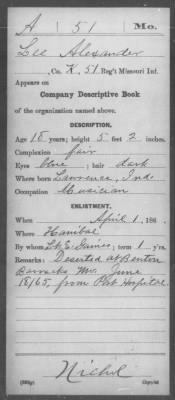 A | 51 | Mo.
Lee Alexander
, Co. K, 51 Reg't Missouri Inf.
Appears on
Company Descriptive Book
of the organization named above.
DESCRIPTION.
Age 18 years; height 5 feet 2 inches.
Complexion fair
Eyes blue; hair dark
Where born Lawrence, Ind.
Occupation Musician
ENLISTMENT.
When April 1, 186 .
Where Hanibal
By whom Lt. E. Gaines; term 1 y'rs.
Remarks: Deserted at Benton
Barracks Mo. June
18, 65, from Post Hospital.
Nichol
Copyist